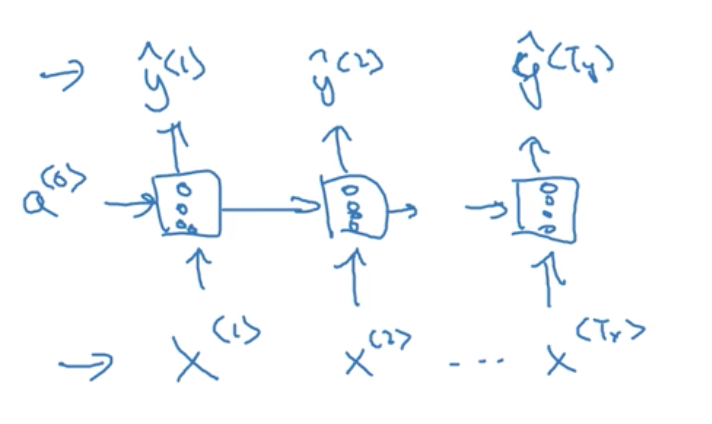 → ŷ⟨1⟩ ŷ⟨2⟩ ŷ⟨Ty⟩
a⟨0⟩
→ x⟨1⟩ x⟨2⟩ ... x⟨Tx⟩